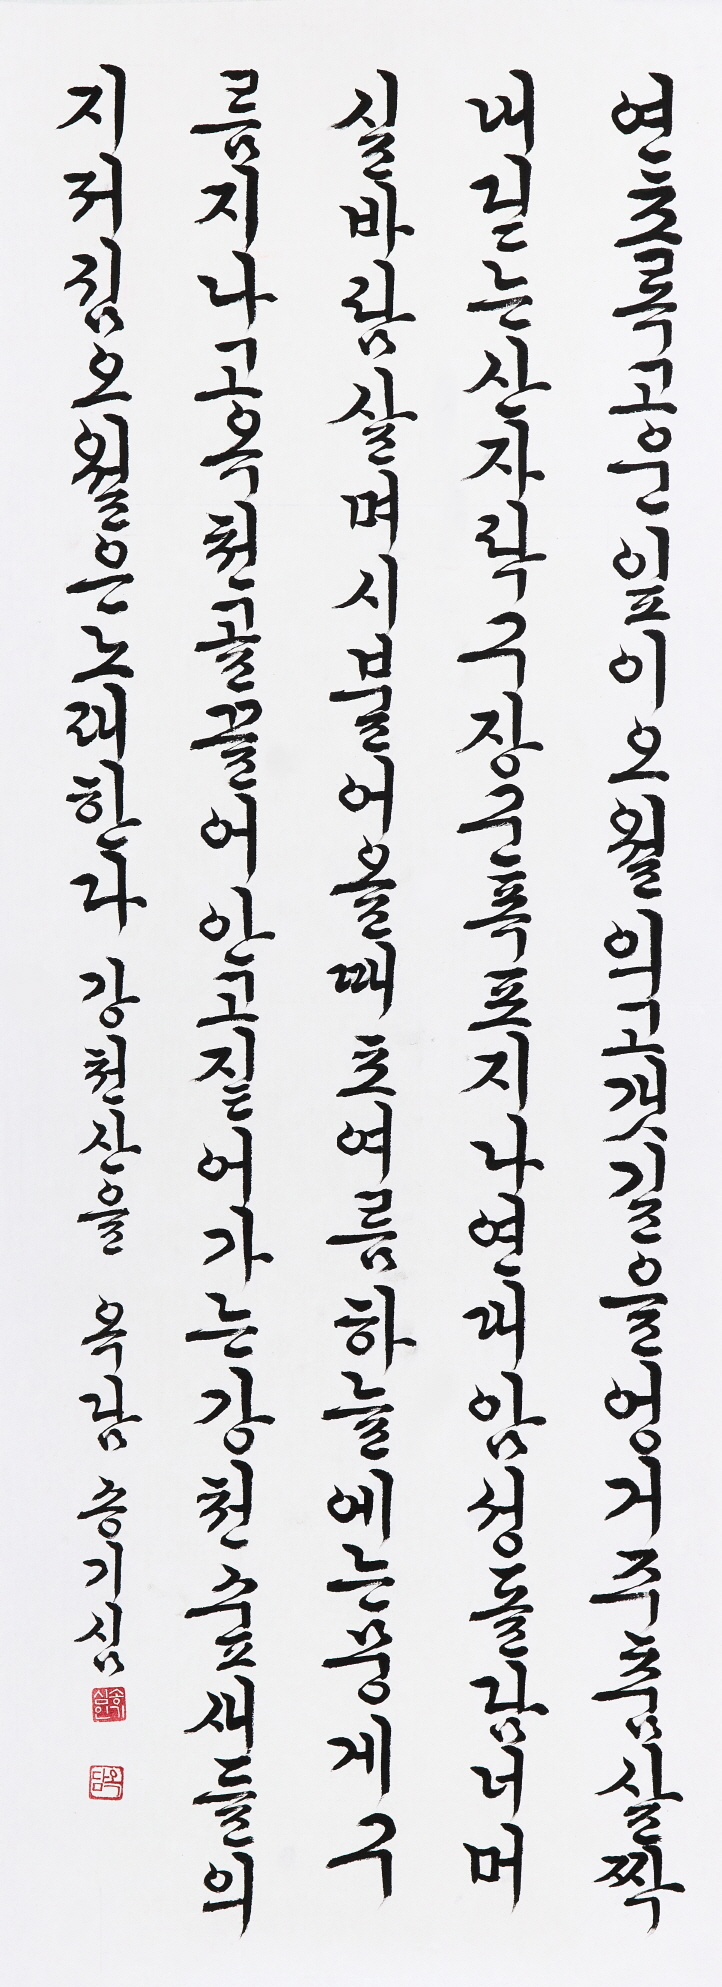 연초록고운잎이오월의고갯길을엉거주춤살짝
내딛는산자락구장군폭포지나연대암성돌담너머
실바람살며시불어올때초여름하늘에는뭉게구
름지나고옥천골끌어안고짙어가는강천숲새들의
지저귐오월은노래한다 강천산을 옥담 송기심
송기심인
옥담